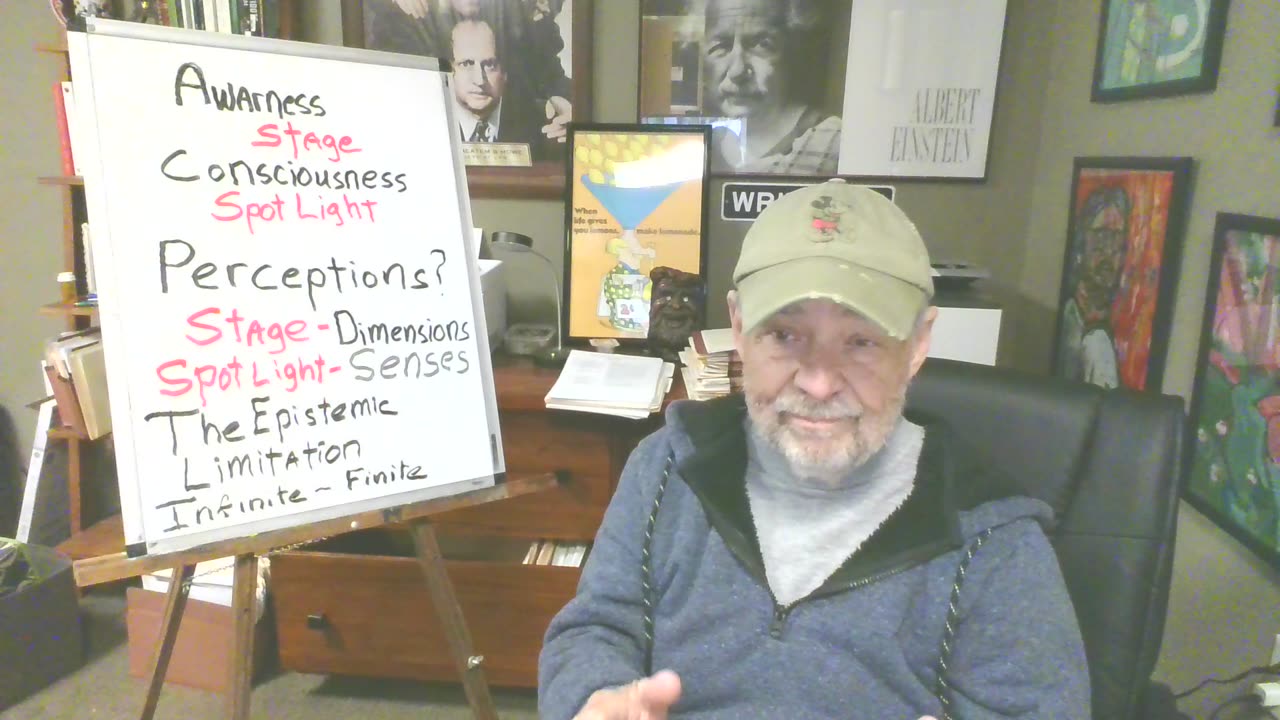 Awarness
Stage
Consciousness
Spot Light
Perceptions?
Stage - Dimensions
Spot Light - Senses
The Epistemic
Limitation
Infinite ~ Finite
When
life gives
you lemons, make lemonade.
ALBERT
EINSTEIN